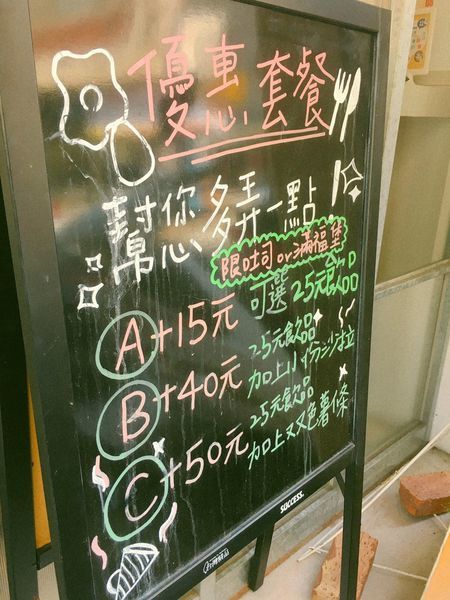 優惠套餐
幫您多弄一點
限吐司or滿福堡
A+15元 可選25元飲品
B+40元 25元飲品
加上小份沙拉
C+50元 25元飲品
加上双色薯條
SUCCESS.